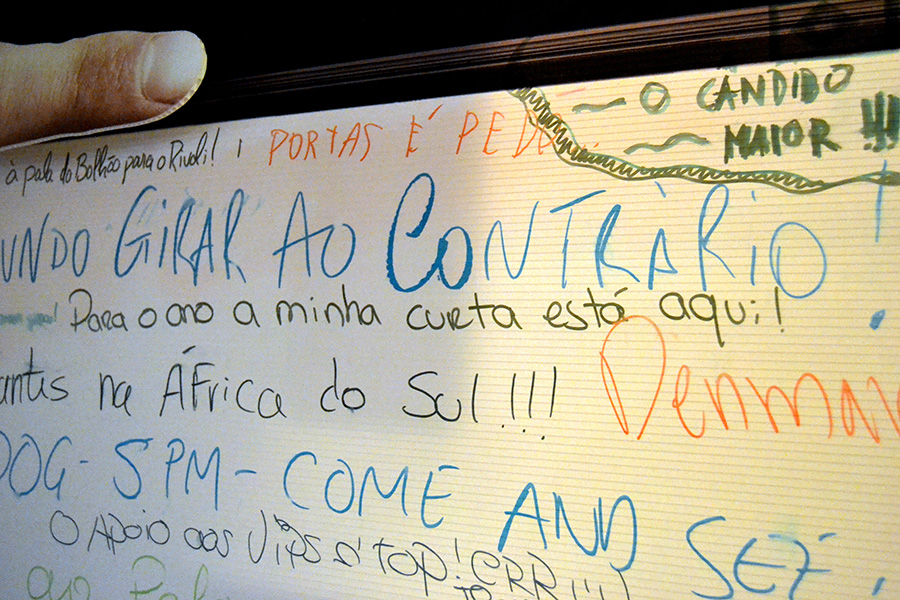 O CÂNDIDO
MAIOR !!!
à pala do Bolhão para o Rivoli!
PORTAS É
UNDO GIRAR AO CONTRÀRIO!
Para o ano a minha curta está aqui!
antis na ÁFrica do Sul!!!
Denmar
DOG - SPM - COME AND SEE.
O Apoio aos Vips é TOP!
ao